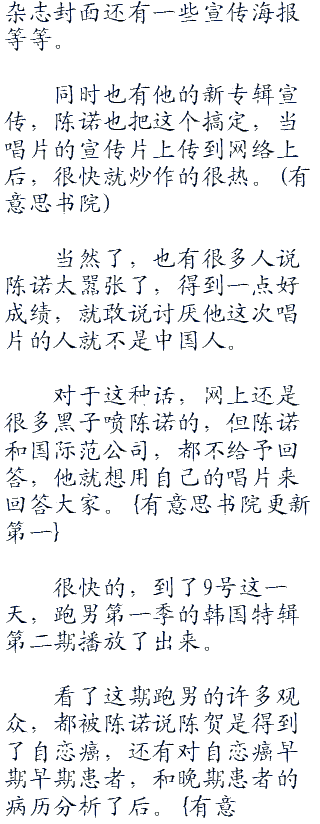 杂志封面还有一些宣传海报
等等。
同时也有他的新专辑宣
传，陈诺也把这个搞定，当
唱片的宣传片上传到网络上
后，很快就炒作的很热。(有
意思书院)
当然了，也有很多人说
陈诺太嚣张了，得到一点好
成绩，就敢说讨厌他这次唱
片的人就不是中国人。
对于这种话，网上还是
很多黑子喷陈诺的，但陈诺
和国际范公司，都不给予回
答，他就想用自己的唱片来
回答大家。{有意思书院更新
第一}
很快的，到了9号这一
天，跑男第一季的韩国特辑
第二期播放了出来。
看了这期跑男的许多观
众，都被陈诺说陈贺是得到
了自恋癌，还有对自恋癌早
期早期患者，和晚期患者的
病历分析了后。{有意